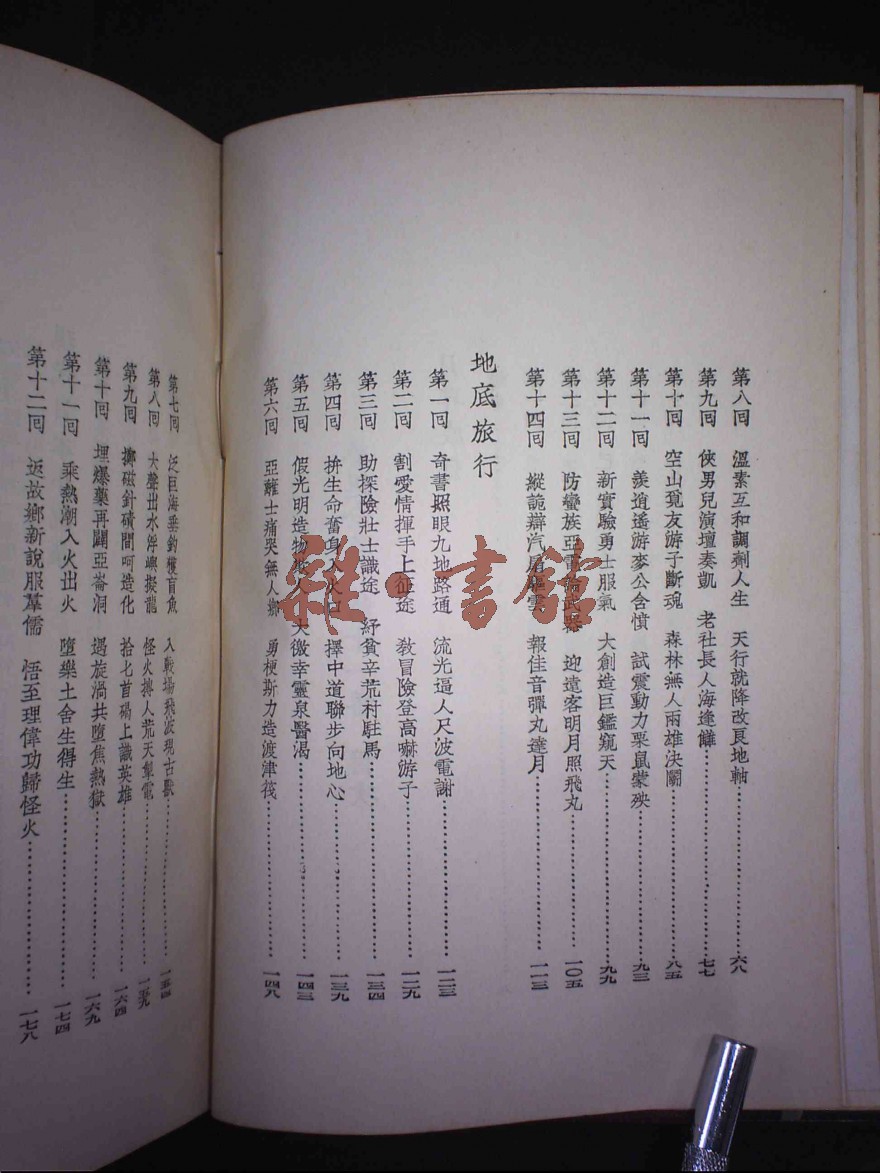 第八回 溫素互和調劑人生 天行就降改良地軸……六八
第九回 俠男兒演壇奏凱 老社長人海逢讎……七七
第十回 空山覓友游子斷魂 森林無人兩雄決鬭……八五
第十一回 羨逍遙游麥公含憤 試震動力栗鼠蒙殃……九三
第十二回 新實驗勇士服氣 大創造巨鑑窺天……九九
第十三回 防蠻族亞電論武器 迎遠客明月照飛丸……一〇五
第十四回 縱詭辯汽扇驅雲 報佳音彈丸達月……一一三
地底旅行
第一回 奇書照眼九地路通 流光逼人尺波電謝……一二三
第二回 割愛情揮手上征途 教冒險登高嚇游子……一二九
第三回 助探險壯士識途 紓貧辛荒村駐馬……一三四
第四回 拚生命奮身入火口 擇中道聯步向地心……一三九
第五回 假光明造物欺人 大徼幸靈泉醫渴……一四三
第六回 亞蘺士痛哭無人鄉 勇梗斯力造渡津筏……一四八
第七回 泛巨海垂釣穫盲魚 入戰場飛波現古獸……一五四
第八回 大聲出水浮嶼擬龍 怪火摶人荒天掣電……一五九
第九回 擲磁針磧間呵造化 拾匕首碣上識英雄……一六四
第十回 埋爆藥再闢亞崙洞 遇旋渦共墮焦熱獄……一六九
第十一回 乘熱潮入火出火 墮樂土舍生得生……一七四
第十二回 返故鄉新說服羣儒 悟至理偉功歸怪火……一七八
雜·書館